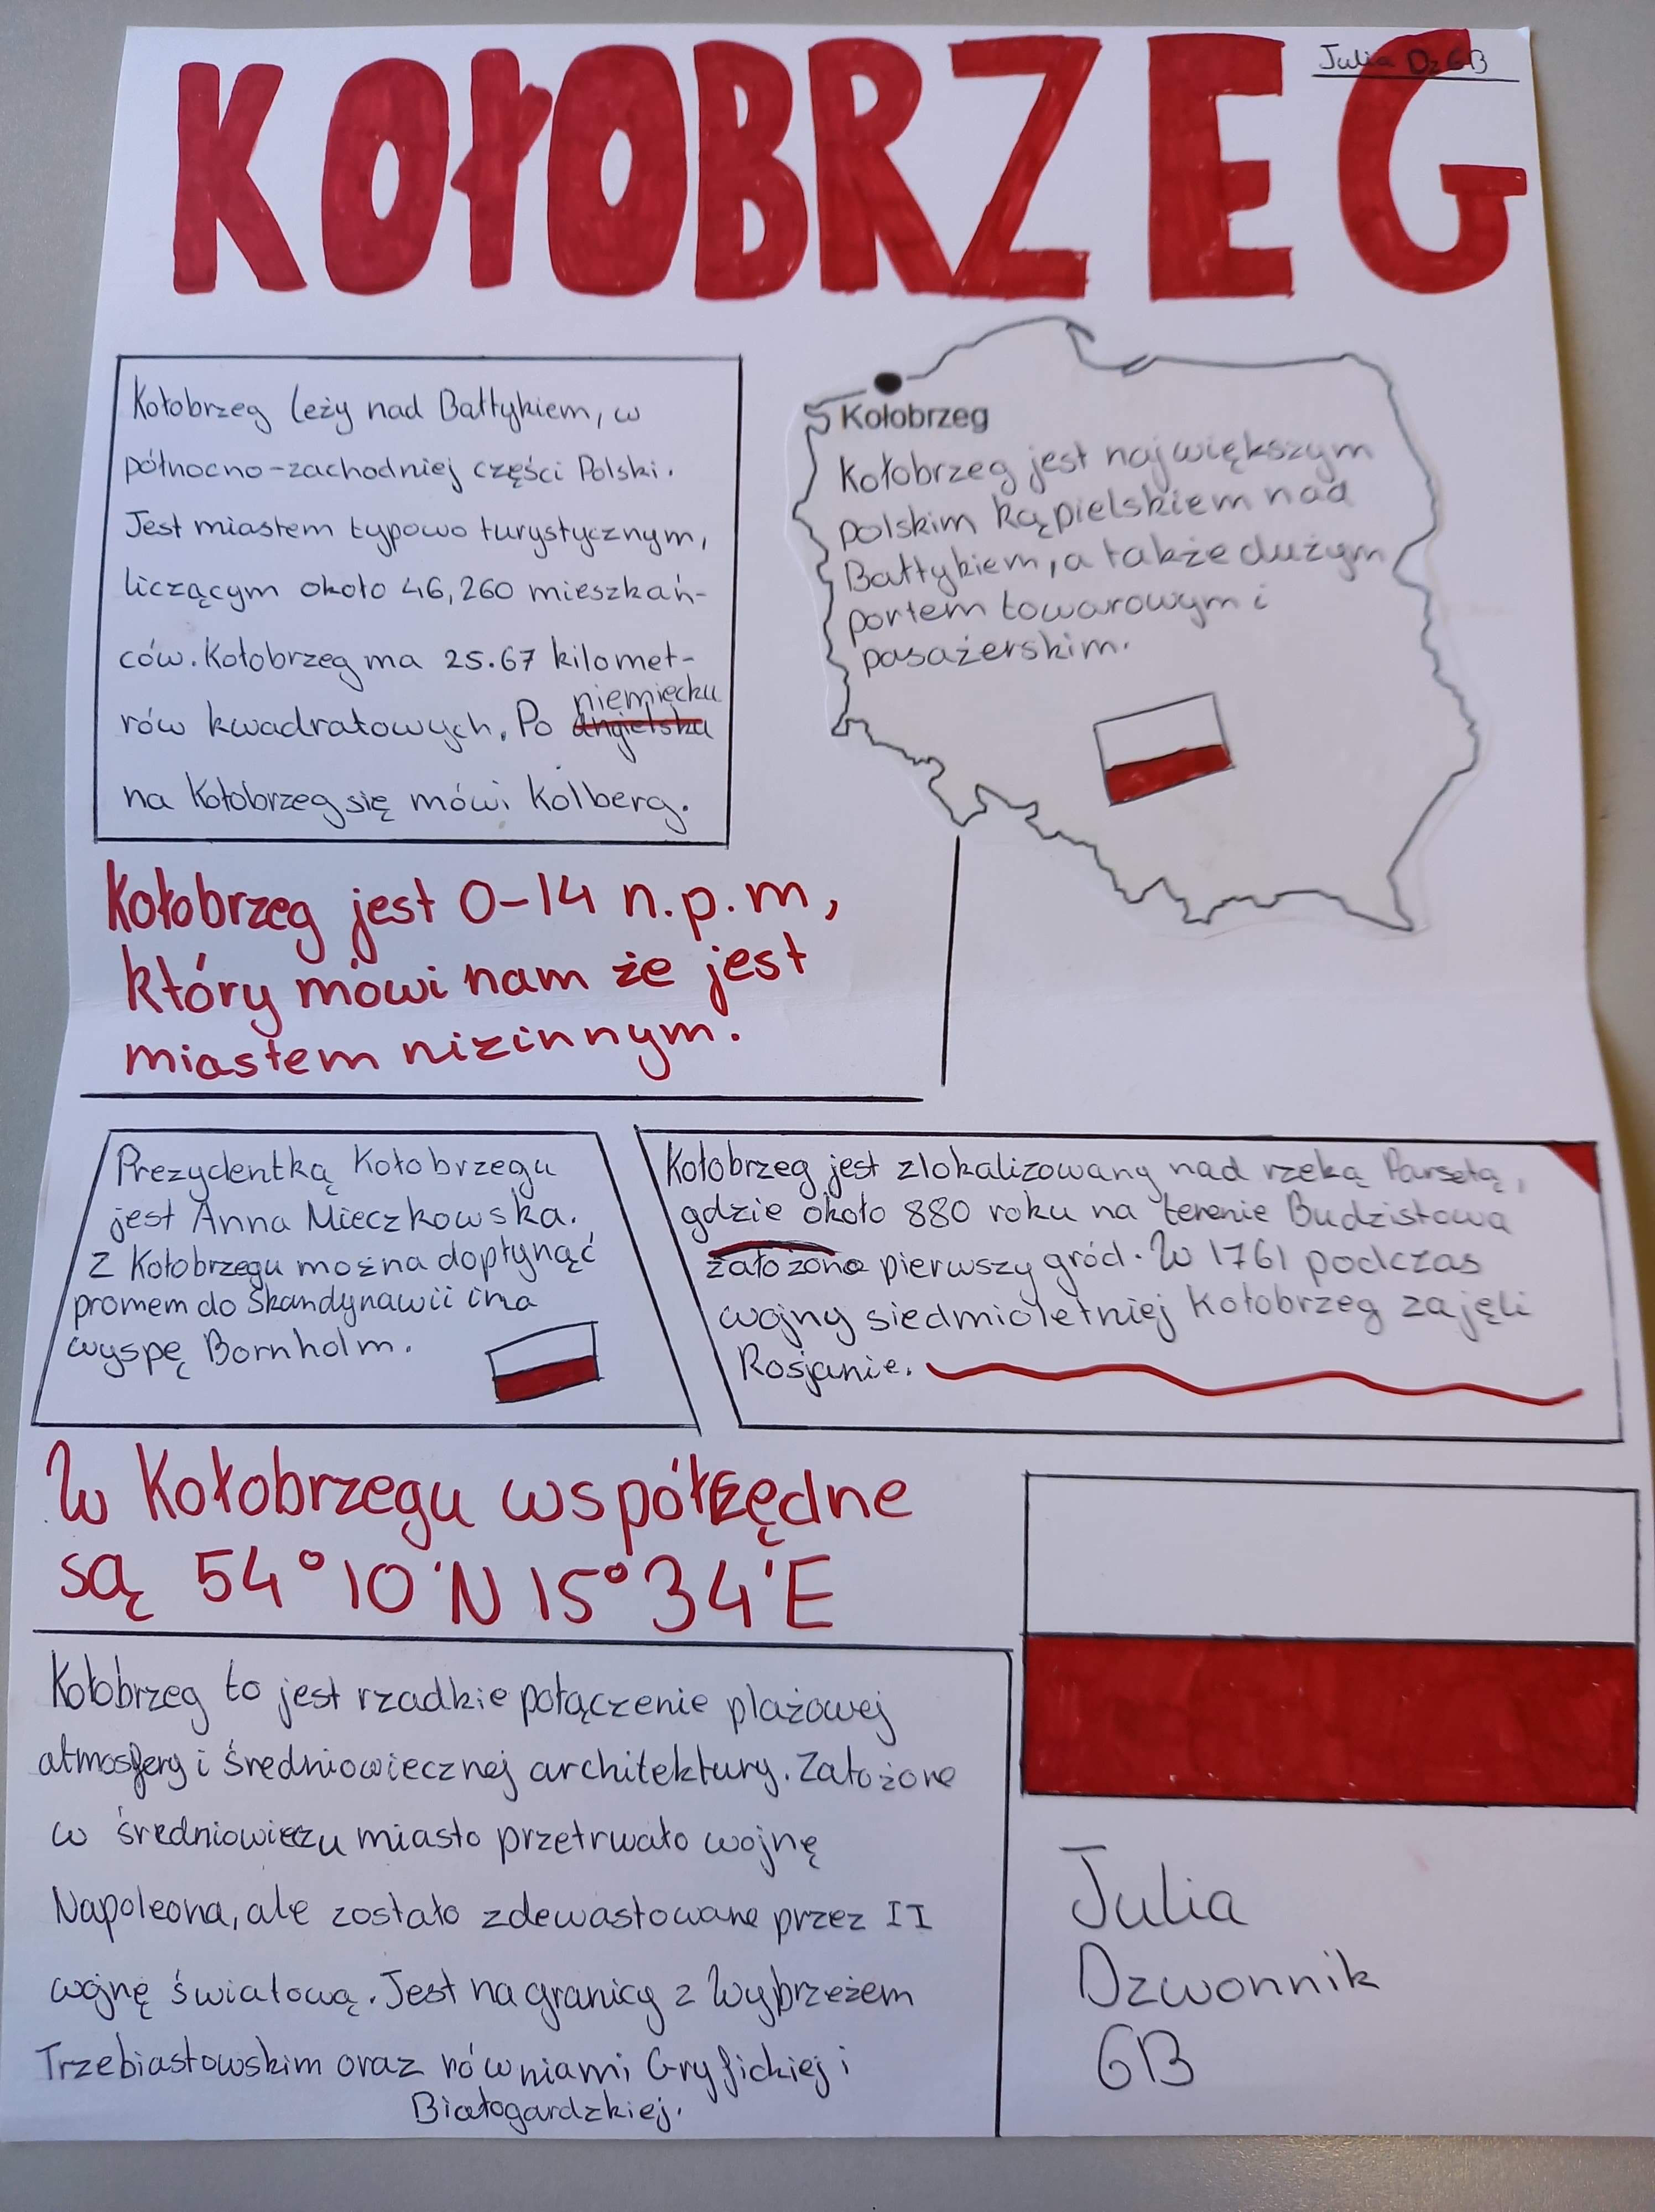 KOŁOBRZEG
Julia Dz 6B
Kołobrzeg leży nad Bałtykiem, w
północno-zachodniej części Polski.
Jest miastem typowo turystycznym,
liczącym około 46,260 mieszkań-
ców. Kołobrzeg ma 25.67 kilomet-
niemiecku
rów kwadratowych. Po angielsku
na Kołobrzeg się mówi Kolberg.
Kołobrzeg
Kołobrzeg jest największym
polskim kąpielskiem nad
Bałtykiem, a także dużym
portem towarowym i
pasażerskim.
Kołobrzeg jest 0-14 n.p.m,
który mówi nam że jest
miastem nizinnym.
Prezydentką Kołobrzegu
jest Anna Mieczkowska.
Z Kołobrzegu można dopłynąć
promem do Skandynawii i na
wyspę Bornholm.
Kołobrzeg jest zlokalizowany nad rzeką Parsętą,
gdzie około 880 roku na terenie Budzistowa
założono pierwszy gród. W 1761 podczas
wojny siedmioletniej Kołobrzeg zajęli
Rosjanie.
W Kołobrzegu współrzędne
są 54°10'N 15°34'E
Kołobrzeg to jest rzadkie połączenie plażowej
atmosfery i średniowiecznej architektury. Założone
w średniowieczu miasto przetrwało wojnę
Napoleona, ale zostało zdewastowane przez II
wojnę światową. Jest na granicy z Wybrzeżem
Trzebiastowskim oraz równiami Gryfickiej i
Białogardzkiej.
Julia
Dzwonnik
6B